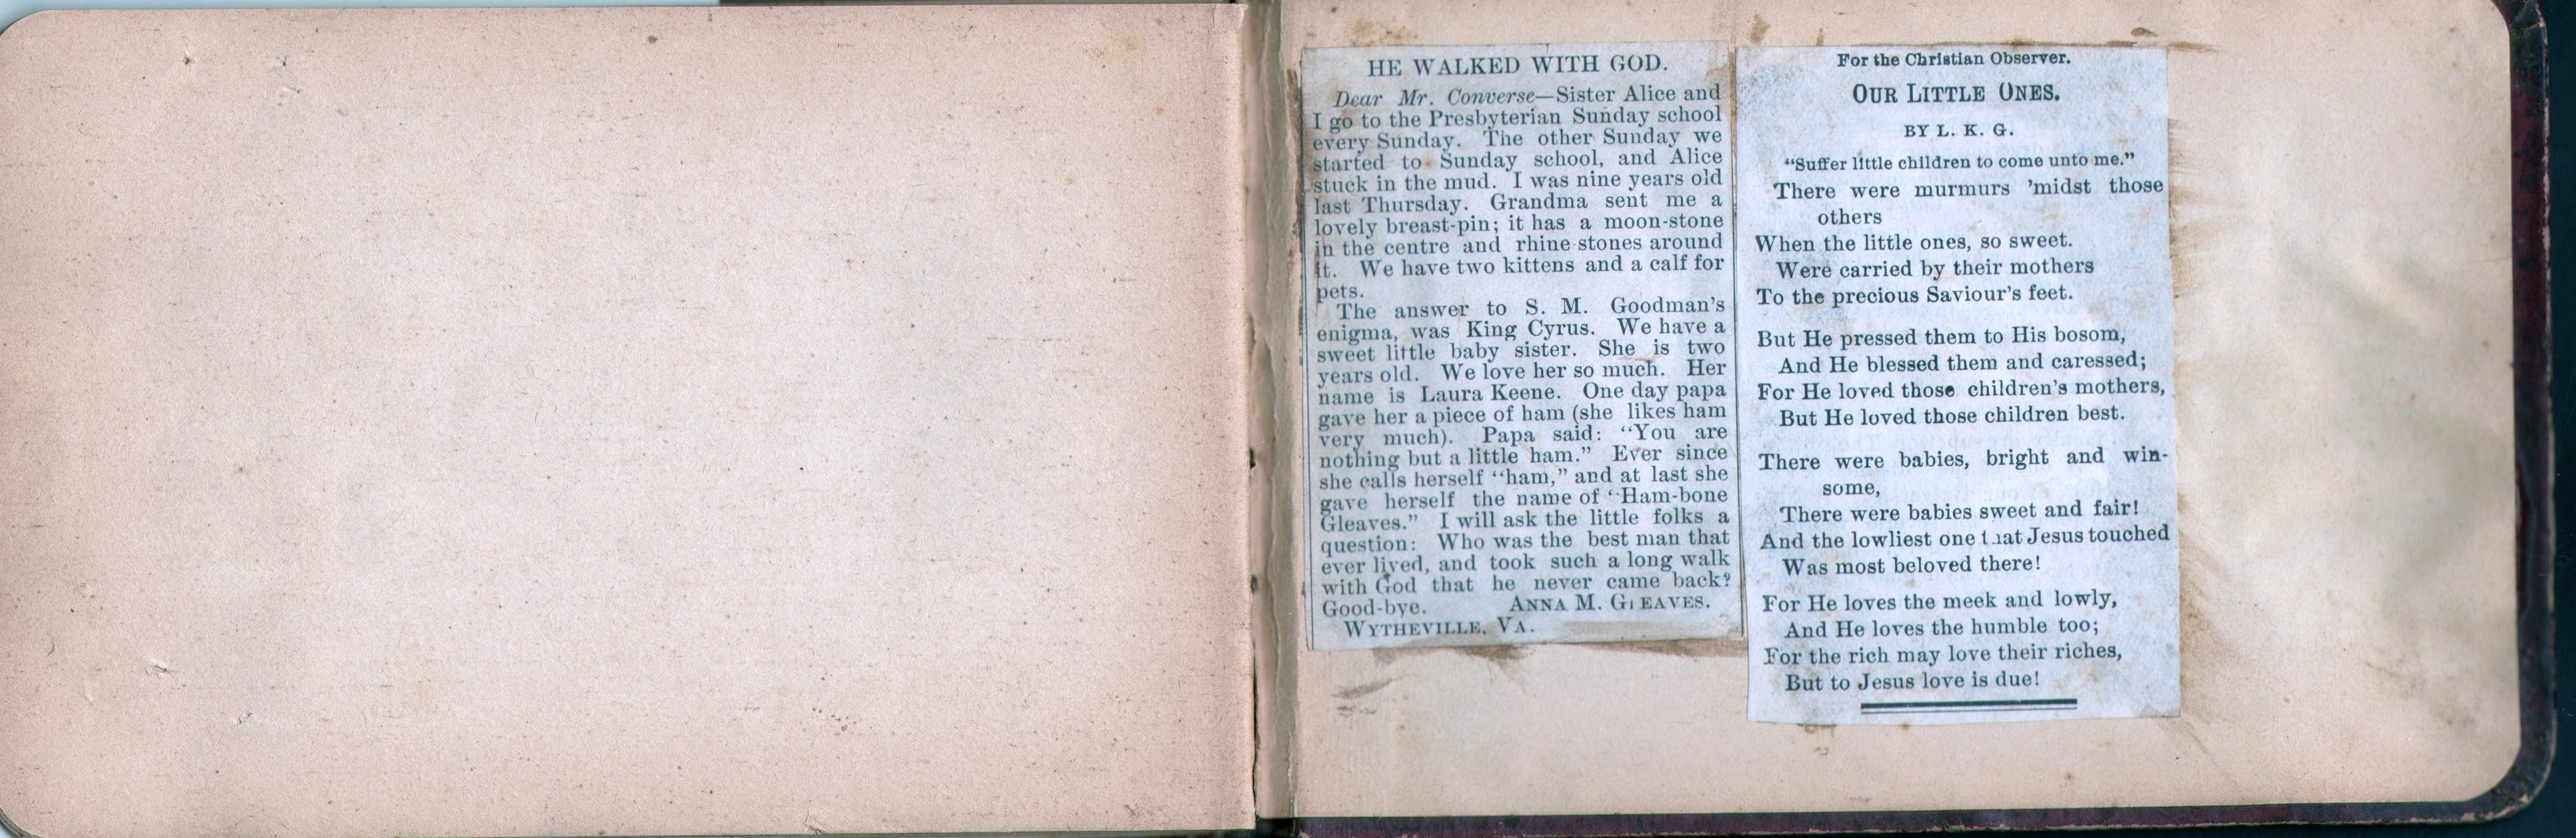 HE WALKED WITH GOD.
Dear Mr. Converse—Sister Alice and
I go to the Presbyterian Sunday school
every Sunday. The other Sunday we
started to Sunday school, and Alice
stuck in the mud. I was nine years old
last Thursday. Grandma sent me a
lovely breast-pin; it has a moon-stone
in the centre and rhine stones around
it. We have two kittens and a calf for
pets.
The answer to S. M. Goodman's
enigma, was King Cyrus. We have a
sweet little baby sister. She is two
years old. We love her so much. Her
name is Laura Keene. One day papa
gave her a piece of ham (she likes ham
very much). Papa said: “You are
nothing but a little ham.” Ever since
she calls herself “ham,” and at last she
gave herself the name of “Ham-bone
Gleaves.” I will ask the little folks a
question: Who was the best man that
ever lived, and took such a long walk
with God that he never came back?
Good-bye. ANNA M. GLEAVES.
WYTHEVILLE, VA.
For the Christian Observer.
OUR LITTLE ONES.
BY L. K. G.
“Suffer little children to come unto me.”
There were murmurs ’midst those
others
When the little ones, so sweet.
Were carried by their mothers
To the precious Saviour's feet.
But He pressed them to His bosom,
And He blessed them and caressed;
For He loved those children's mothers,
But He loved those children best.
There were babies, bright and win-
some,
There were babies sweet and fair!
And the lowliest one that Jesus touched
Was most beloved there!
For He loves the meek and lowly,
And He loves the humble too;
For the rich may love their riches,
But to Jesus love is due!